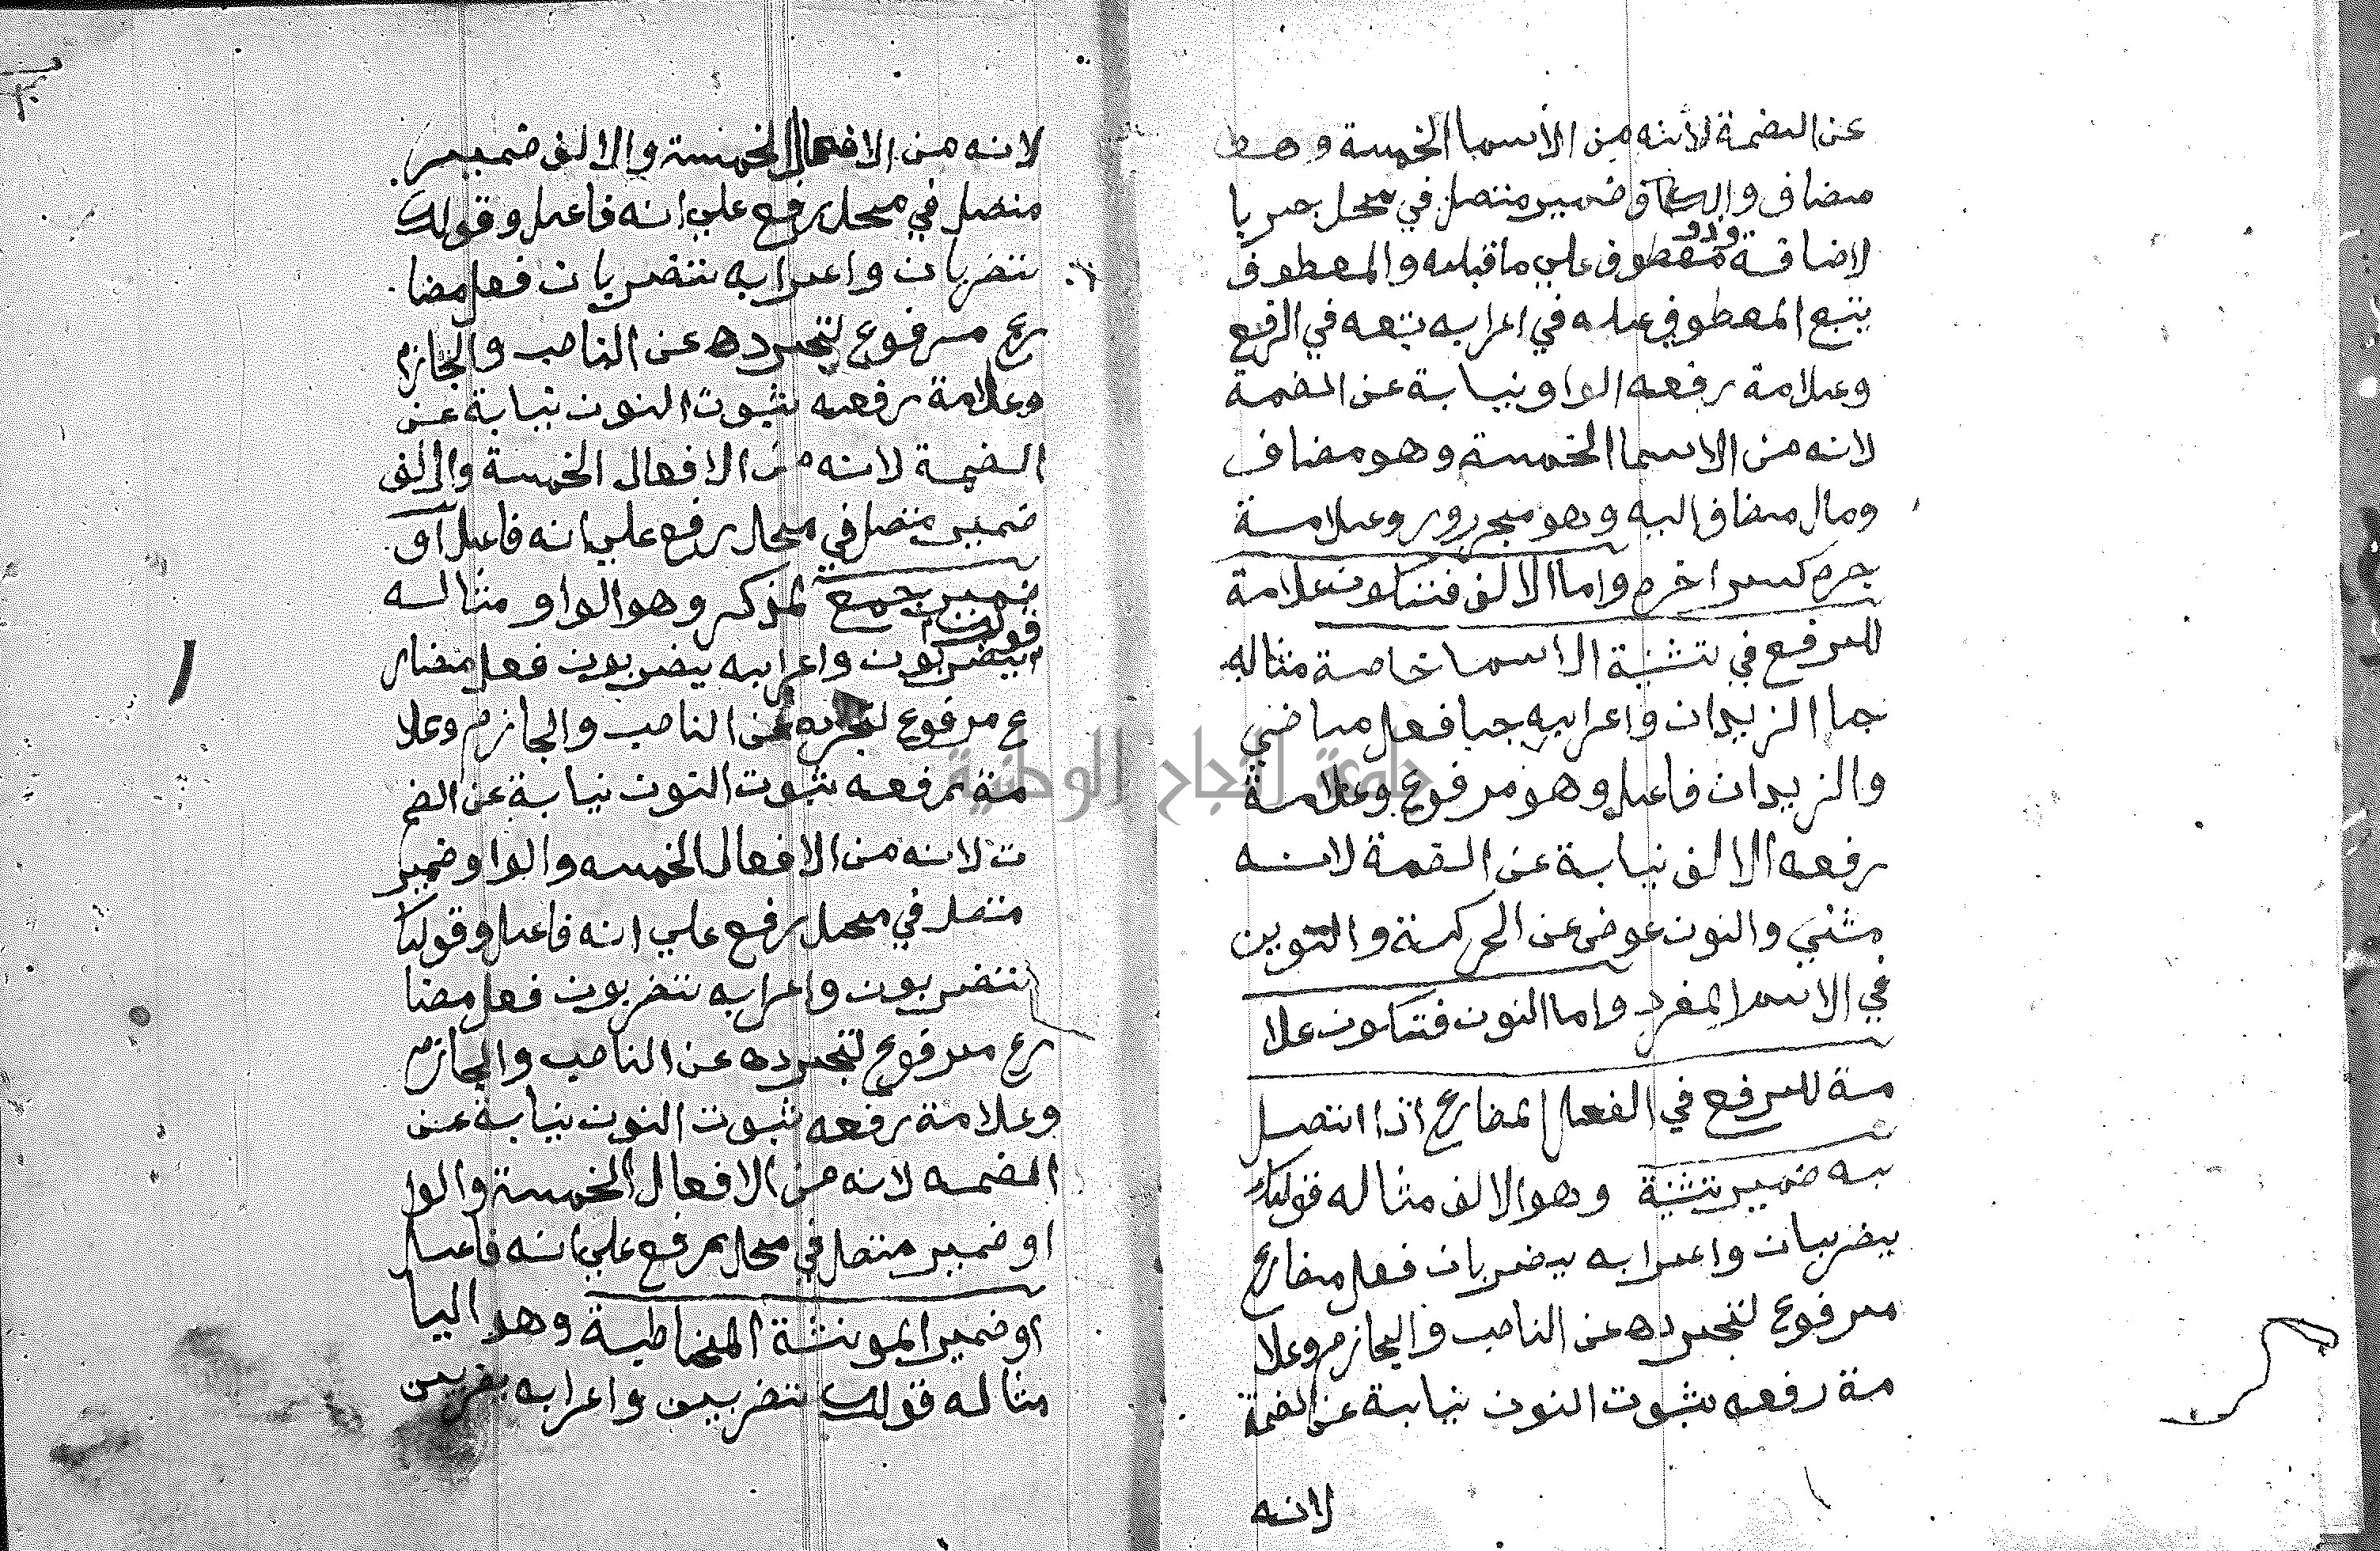 عن الضمة لأنه من الأسما الخمسة وهو
مضاف والكاف ضمير متصل في محل جر با
لاضافة وذو معطوف علي ما قبله والمعطوف
يتبع المعطوف عليه في اعرابه تبعه في الرفع
وعلامة رفعه الواو نيابة عن الضمة
لانه من الاسما الخمسة وهو مضاف
ومال مضاف اليه وهو مجرور وعلامة
جره كسر اخره واما الالف فتكون علامة
للرفع في تثنية الاسما خاصة مثاله
جا الزيدان واعرابه جا فعل ماضي
والزيدان فاعل وهو مرفوع وعلامة
رفعه الالف نيابة عن الضمة لانه
مثني والنون عوض عن الحركة والتنوين
في الاسم المفرد واما النون فتكون علا
مة للرفع في الفعل المضارع اذا اتصل
به ضمير تثنية وهو الالف مثاله قولك
يضربان واعرابه يضربان فعل مضارع
مرفوع لتجرده عن الناصب والجازم وعلا
مة رفعه ثبوت النون نيابة عن الضمة
لانه
لانه من الافعال الخمسة والالف ضمير
متصل في محل رفع علي انه فاعل وقولك
تضربان واعرابه تضربان فعل مضا
رع مرفوع لتجرده عن الناصب والجازم
وعلامة رفعه ثبوت النون نيابة عن
الضمة لانه من الافعال الخمسة والالف
ضمير متصل في محل رفع علي انه فاعل او
ضمير جمع المذكر وهو الواو مثاله
قولك
يضربون واعرابه يضربون فعل مضار
ع مرفوع لتجرده عن الناصب والجازم وعلا
مة رفعه ثبوت النون نيابة عن الضم
ة لانه من الافعال الخمسه والواو ضمير
متصل في محل رفع علي انه فاعل وقولك
تضربون واعرابه تضربون فعل مضا
رع مرفوع لتجرده عن الناصب والجازم
وعلامة رفعه ثبوت النون نيابة عن
الضمه لانه من الافعال الخمسة والوا
او ضمير متصل في محل رفع علي انه فاعل
او ضمير المونثة المخاطبة وهو اليا
مثاله قولك تضربين واعرابه تضربين
جامعة النجاح الوطنية